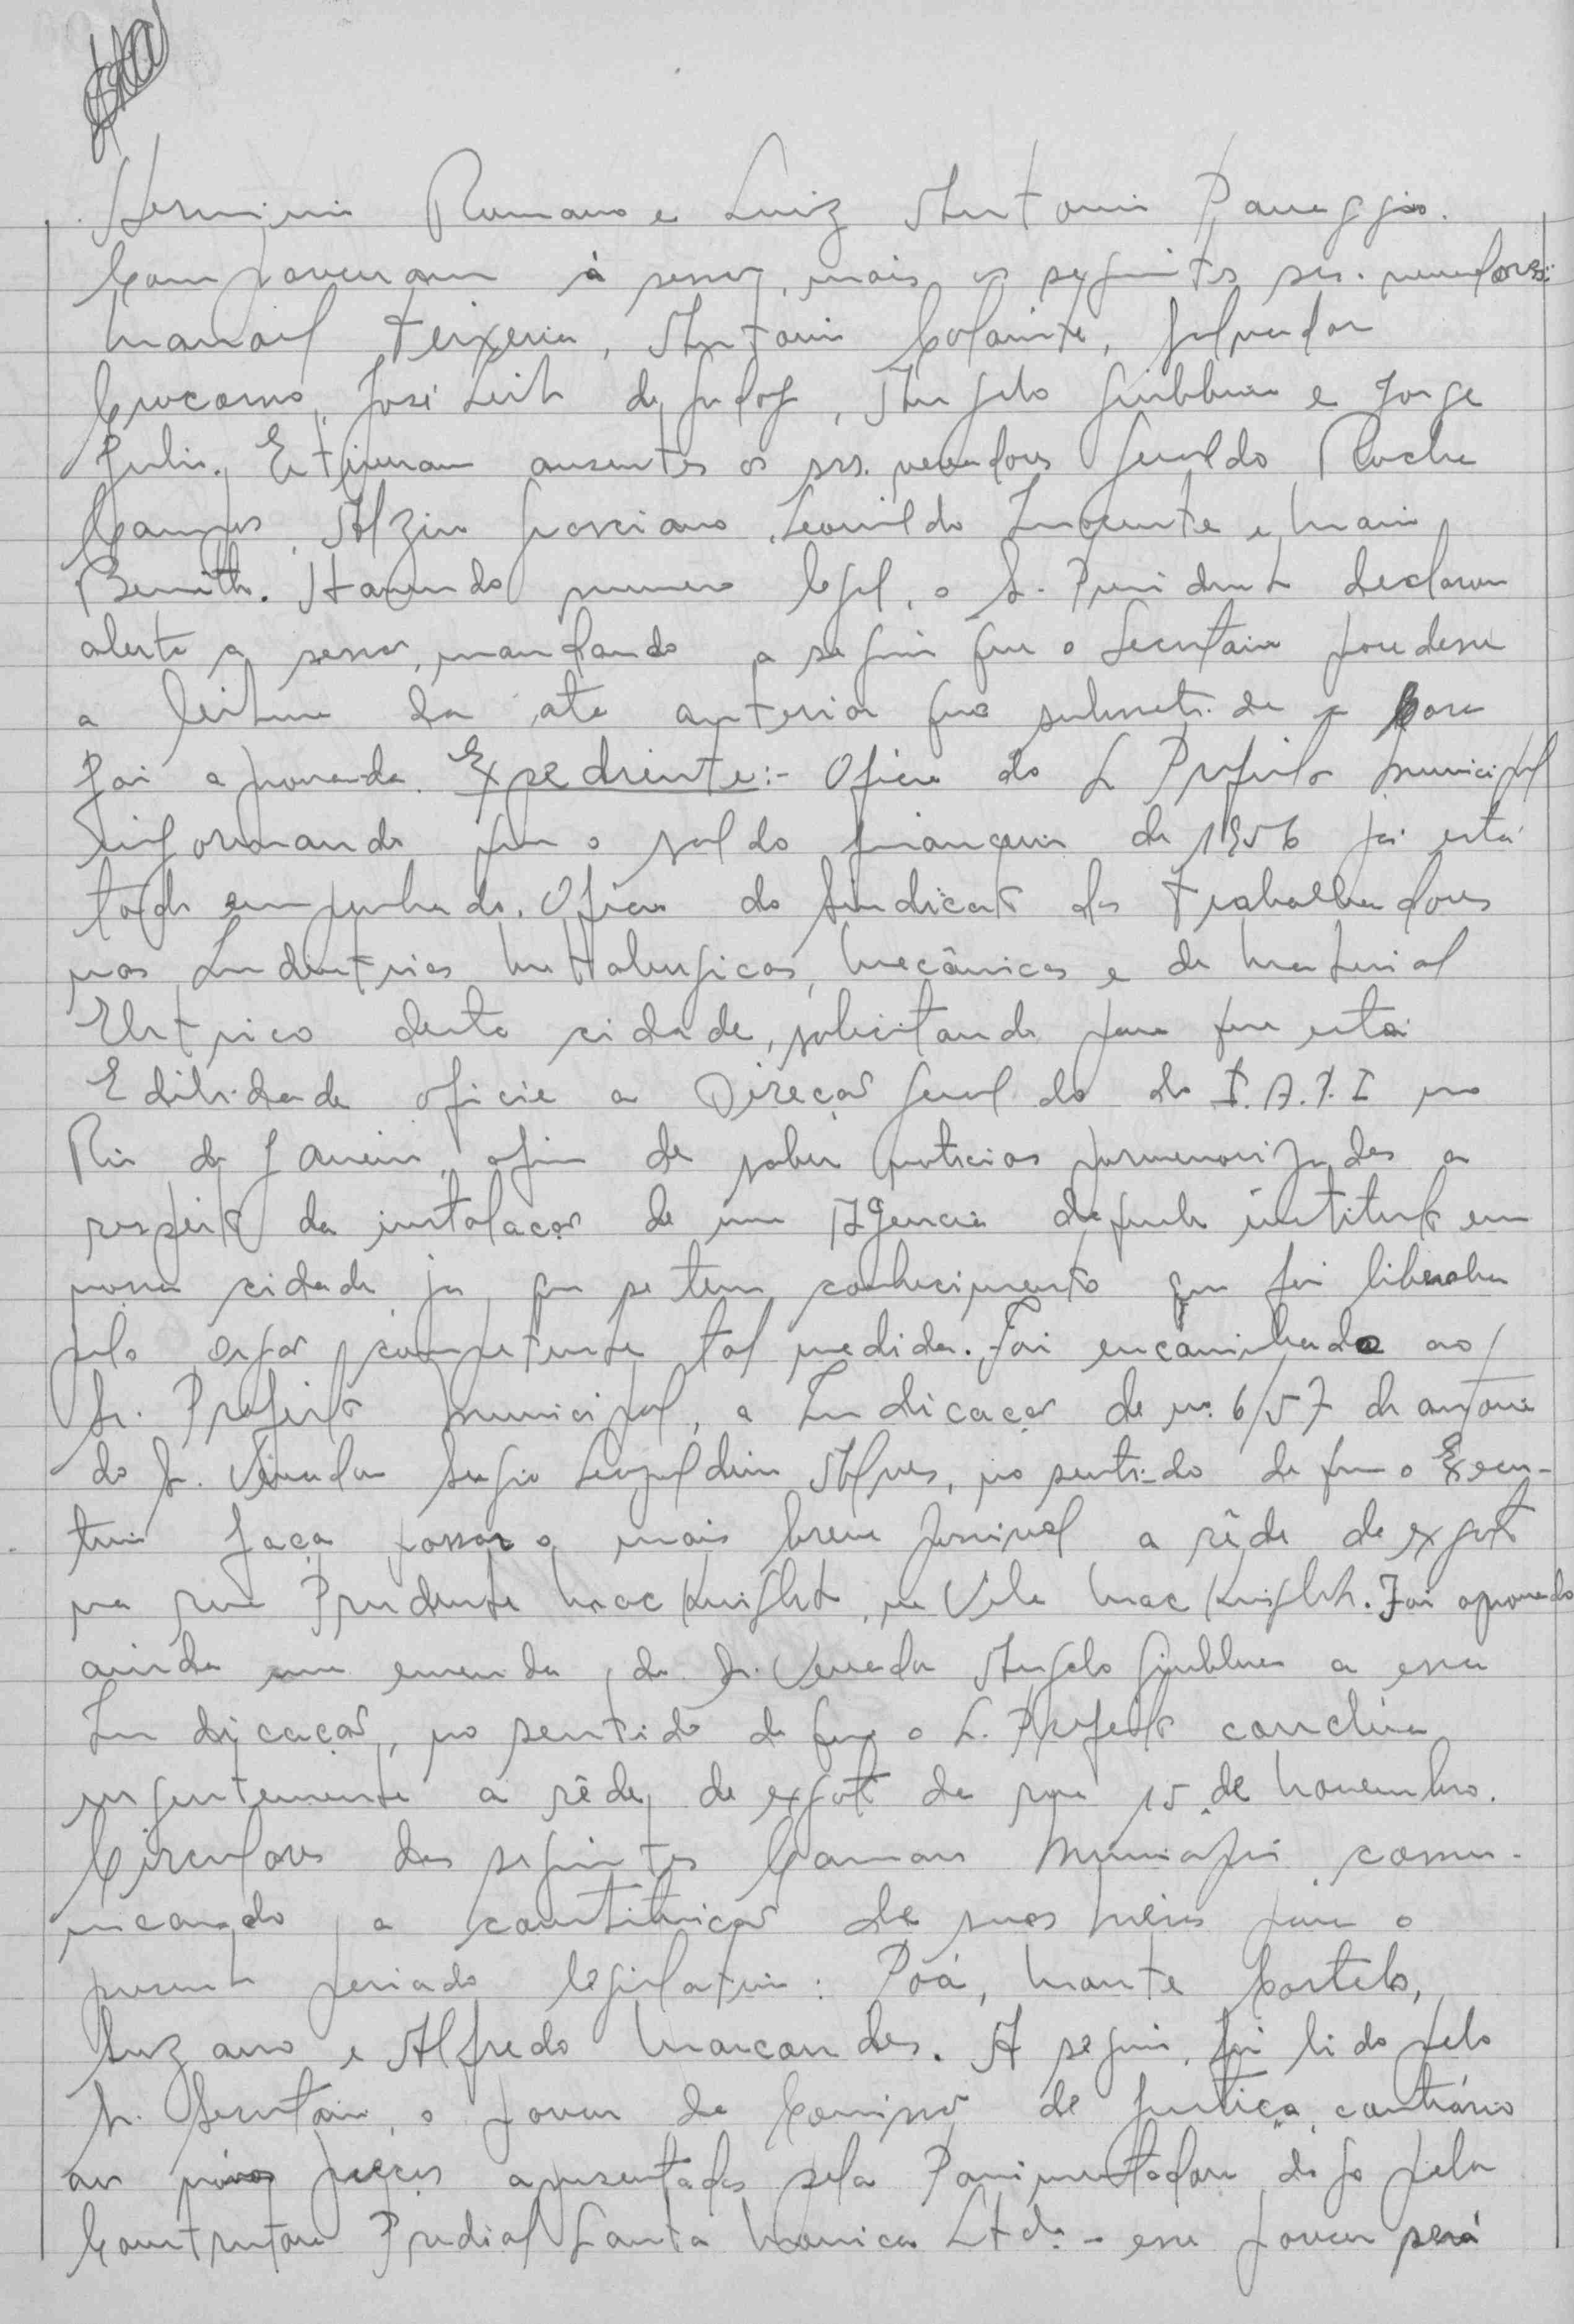 Herminio Romano e Luiz Antonio Paneggio.
Compareceram à sessão, mais os seguintes srs. vereadores:
Manoel Teixeira, Antonio Colarite, Salvador
Crocomo, José Leite de Godoy, Angelo Giubbina e Jorge
Julio. Estiveram ausentes os srs. vereadores Geraldo Rocha
Campos, Alziro Graciano, Leonildo Inocente e Mario
Benith. Havendo numero legal, o Sr. Presidente declarou
aberta a sessão, mandando a seguir que o Secretario procedesse
a leitura da ata anterior que submetida a Casa
foi aprovada. Expediente:- Oficio do Sr Prefeito Municipal
informando que o saldo financeiro de 1956 já está
todo empenhado. Oficio do Sindicato dos Trabalhadores
nas Industrias Mettalurgicas, Mecânicas e de Material
Eletrico desta cidade, solicitando para que esta
Edilidade oficie a Direção Geral do do I.A.P.I no
Rio de Janeiro, afim de saber noticias pormenorizadas a
respeito da instalação de uma Agencia daquele instituto em
nossa cidade já que se tem conhecimento que foi liberada
pelo orgão competente tal medida. Foi encaminhada ao
Sr. Prefeito Municipal, a Indicação de nº 6/57 de autoria
do Sr. Vereador Sergio Leopoldino Alves, no sentido de que o Execu-
tivo faça passar o mais breve possivel a rêde de exgoto
na rua Prudente Mac Knight, na Vila Mac Knight. Foi aprovado
ainda uma emenda do Sr. Vereador Angelo Giubbina a essa
Indicação, no sentido de que o Sr. Prefeito conclúa
urgentemente a rêde de exgoto da rua 15 de Novembro.
Circulares das seguintes Camaras Municipais comu-
nicando a constituição de suas mêsas para o
presente periodo legislativo: Poá, Monte Castelo,
Suzano e Alfredo Marcondes. A seguir, foi lido pelo
Sr. Secretario, o parecer da Comissão de Justiça, contrário
aos novos preços apresentados pela Pavimentadora digo pela
Construtora Predial Santa Monica Ltda. - esse parecer será